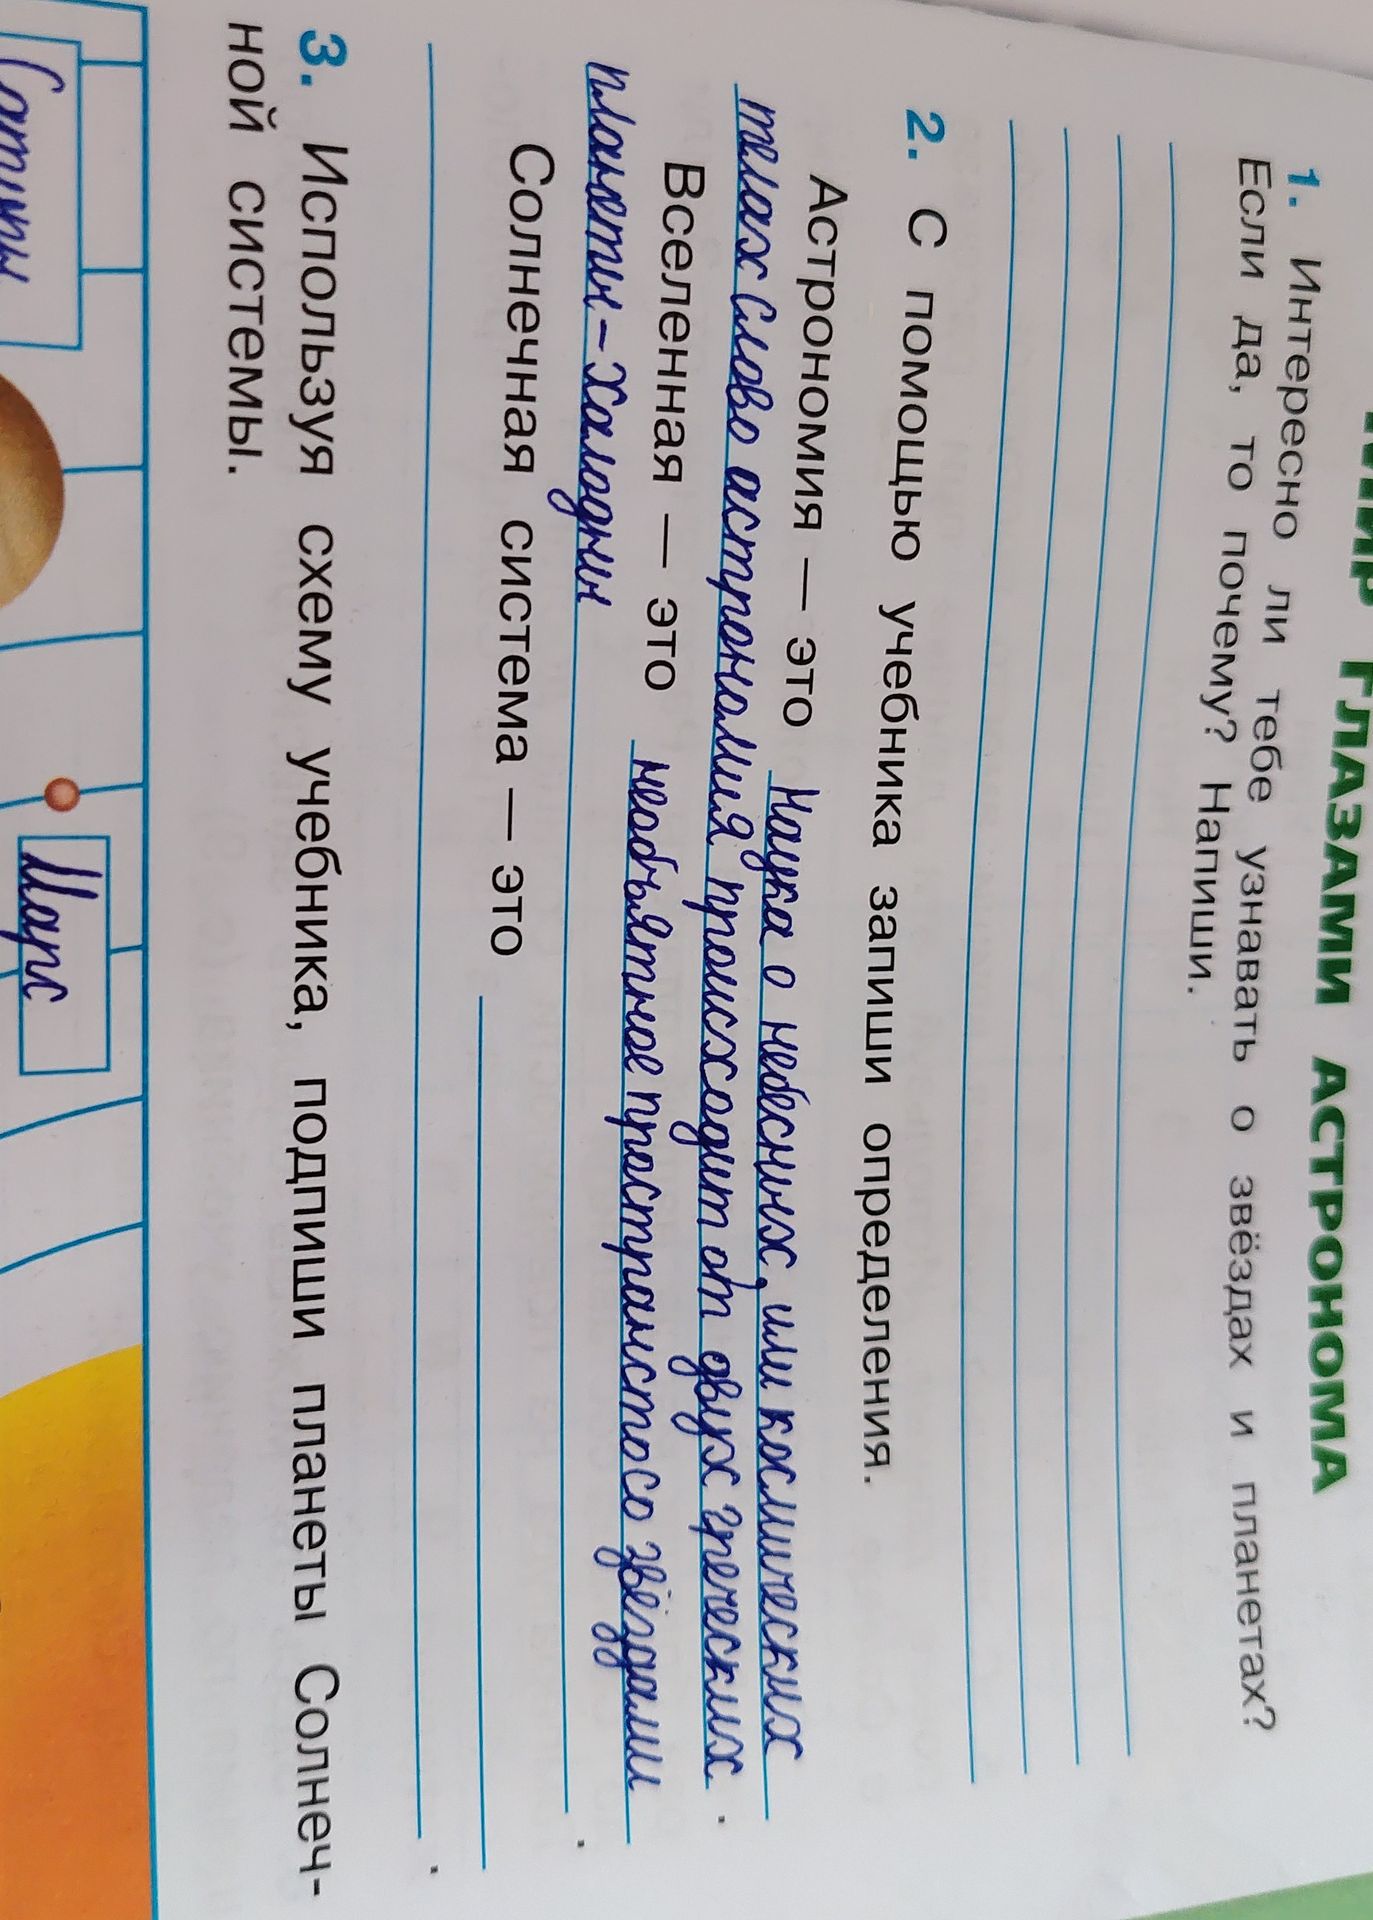 МИР ГЛАЗАМИ АСТРОНОМА
1. Интересно ли тебе узнавать о звёздах и планетах?
Если да, то почему? Напиши.
2. С помощью учебника запиши определения.
Астрономия — это Наука о небесных, или космических
телах слово астрономия происходит от двух греческих.
Вселенная — это необъятное пространстосо звёздами
планеты-холодны.
Солнечная система — это
.
3. Используя схему учебника, подпиши планеты Солнеч-
ной системы.
Сатурн
Марс